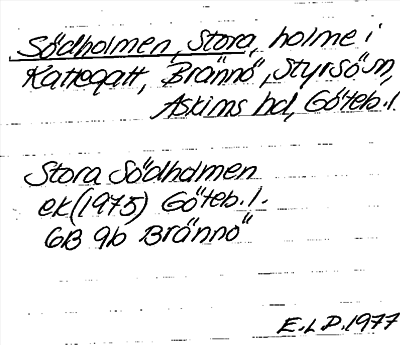 Södholmen, Stora, holme i
Kattegatt, Brännö, Styrsö sn,
Askims hd, Göteb. l.
Stora Södholmen
ek (1975) Göteb. l.
6B 9b Brännö
E.L.P. 1977